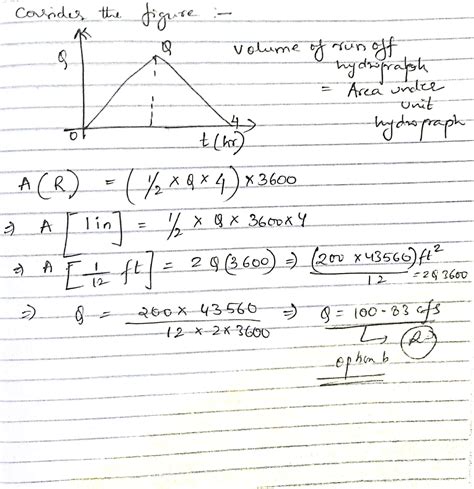 Consider the figure :-
Q
Q
volume of run off
hydrograph
= Area under
unit
hydrograph
0
4
t (hr)
A (R) = (1/2 × Q × 4) × 3600
⇒ A [1 in] = 1/2 × Q × 3600 × 4
⇒ A [1/12 ft] = 2Q (3600) ⇒ (200 × 43560) ft² / 12 = 2Q 3600
⇒ Q = 200 × 43560 / 12 × 2 × 3600 ⇒ Q = 100.83 cfs
option b